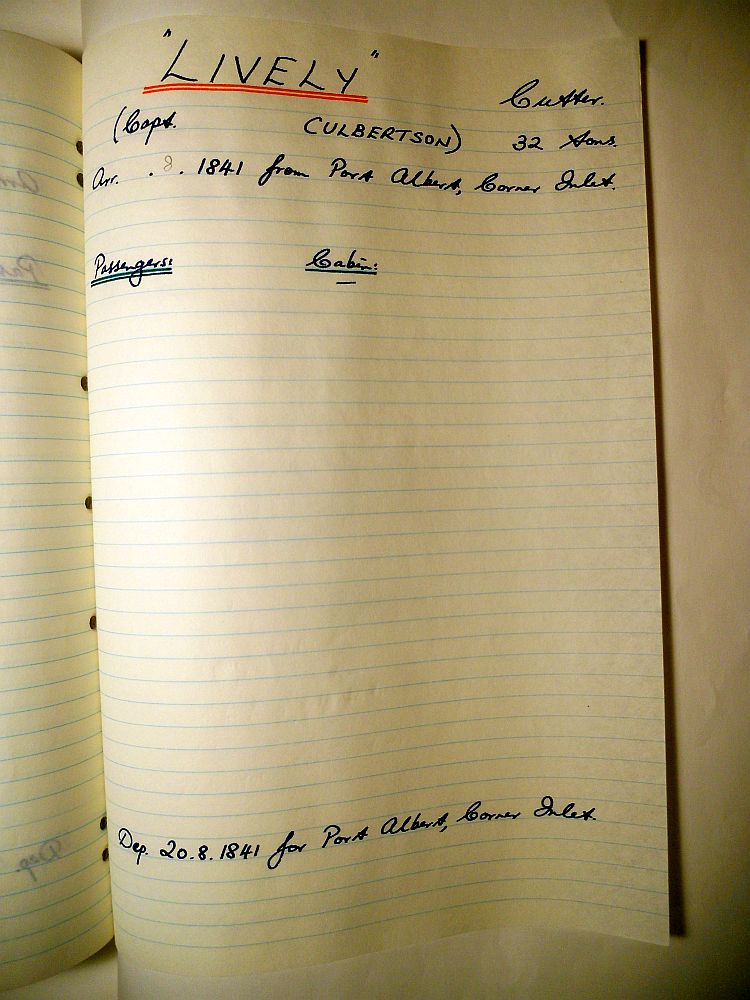 "LIVELY"
Cutter.
(Capt. CULBERTSON) 32 tons.
Arr. . 8. 1841 from Port Albert, Corner Inlet.
Passengers: Cabin:
—
Dep. 20.8.1841 for Port Albert, Corner Inlet.